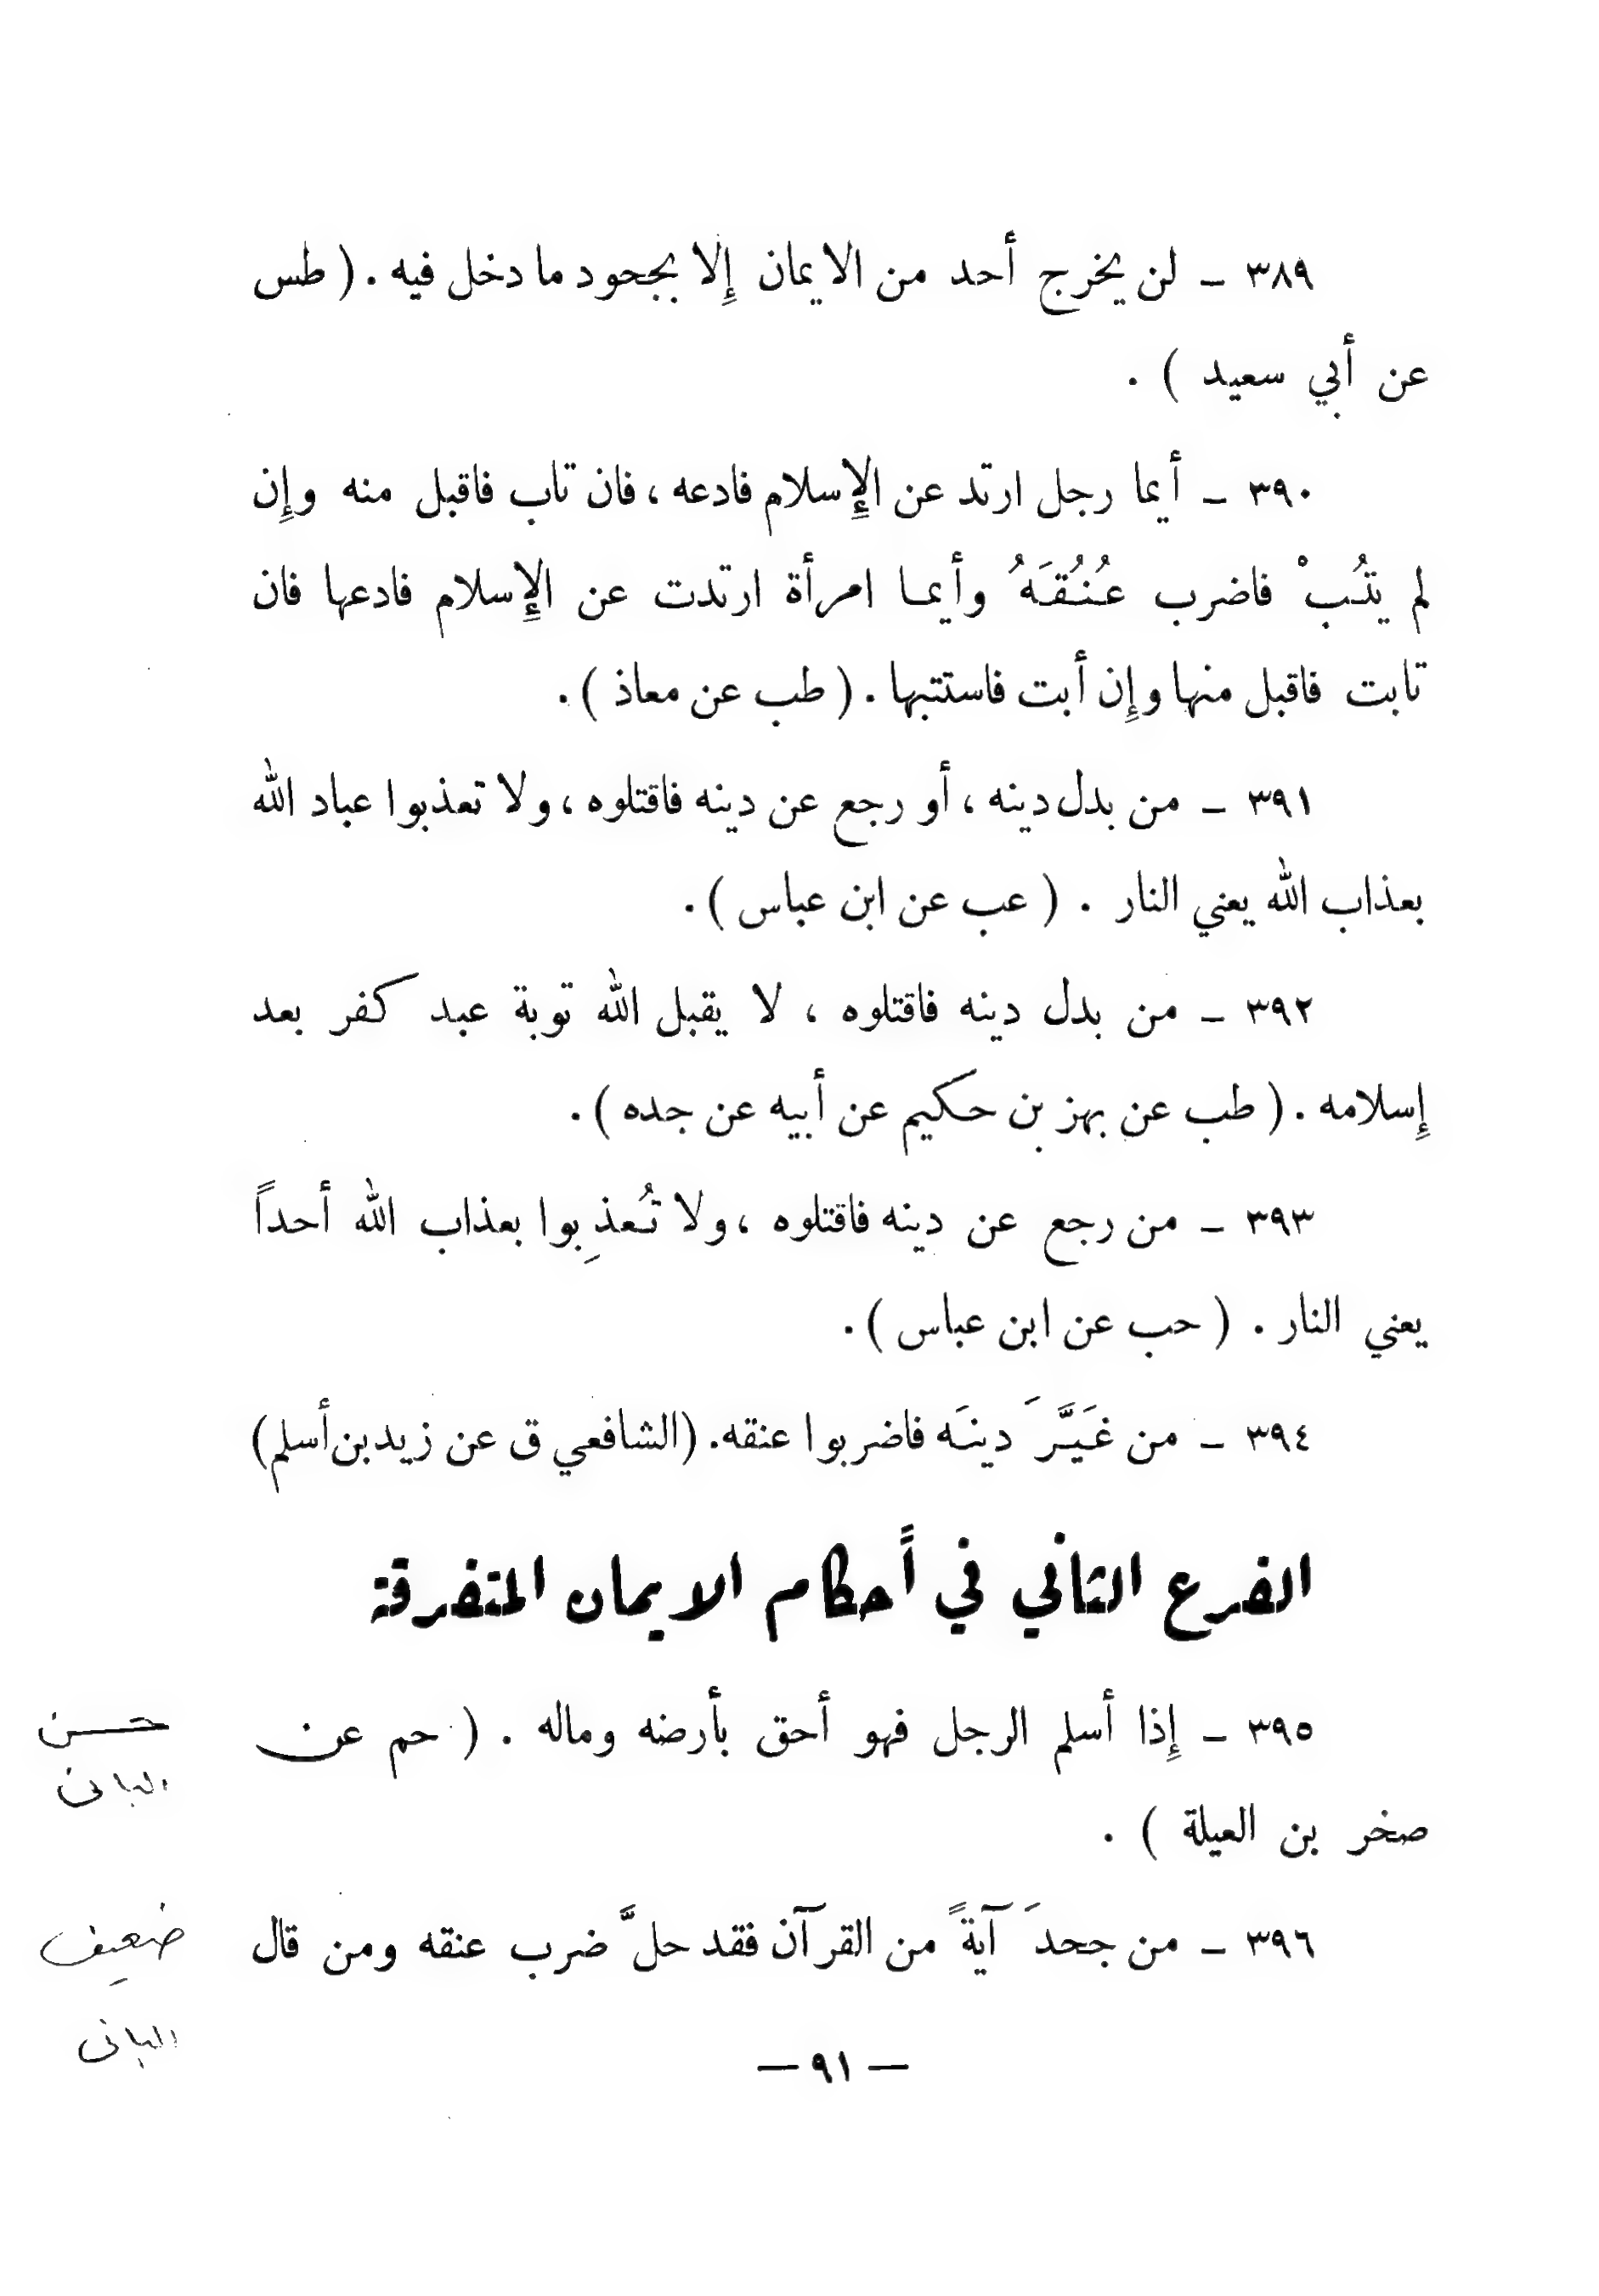 ٣٨٩ ـ لن يخرج أحد من الايمان إِلا بجحود ما دخل فيه . ( طس
عن أبي سعيد ) .
٣٩٠ ـ أيما رجل ارتد عن الإِسلام فادعه ، فان تاب فاقبل منه وإِن
لم يتُبْ فاضرب عُنُقَهُ وأيما امرأة ارتدت عن الإِسلام فادعها فان
تابت فاقبل منها وإِن أبت فاستتبها . ( طب عن معاذ ) .
٣٩١ ـ من بدل دينه ، أو رجع عن دينه فاقتلوه ، ولا تعذبوا عباد الله
بعذاب الله يعني النار . ( عب عن ابن عباس ) .
٣٩٢ ـ من بدل دينه فاقتلوه ، لا يقبل الله توبة عبد كفر بعد
إِسلامه . ( طب عن بهز بن حكيم عن أبيه عن جده ) .
٣٩٣ ـ من رجع عن دينه فاقتلوه ، ولا تُعذِبوا بعذاب الله أحداً
يعني النار . ( حب عن ابن عباس ) .
٣٩٤ ـ من غَيَّرَ دينَه فاضربوا عنقه . (الشافعي ق عن زيد بن أسلم)
الفرع الثاني في أحكام الايمان المتفرقة
٣٩٥ ـ إِذا أسلم الرجل فهو أحق بأرضه وماله . ( حم عن
حسن
البانى
صخر بن العيلة ) .
٣٩٦ ـ من جحدَ آيةً من القرآن فقد حلَّ ضرب عنقه ومن قال
ضعيف
البانى
— ٩١ —